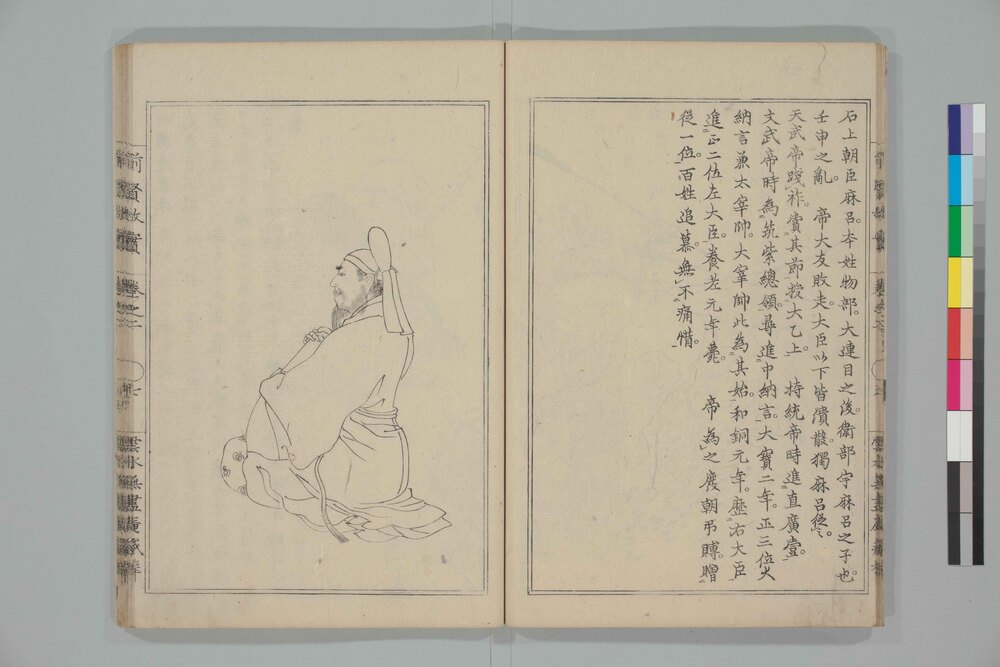 石上朝臣麻呂。本姓物部。大連目之後。衛部宇麻呂之子也。
壬申之亂。　帝大友敗走。大臣以下皆潰散。獨麻呂從
天武帝踐祚。賞其節授大乙上。　持統帝時進直廣壹。
文武帝時為筑紫總領。尋進中納言。大寶二年。正三位大
納言兼太宰帥。大宰帥此為其始。和銅元年。歷右大臣
進正二位左大臣。養老元年薨。　帝為之廢朝弔賻。贈
從一位。百姓追慕無不痛惜。
前賢故實　卷之二